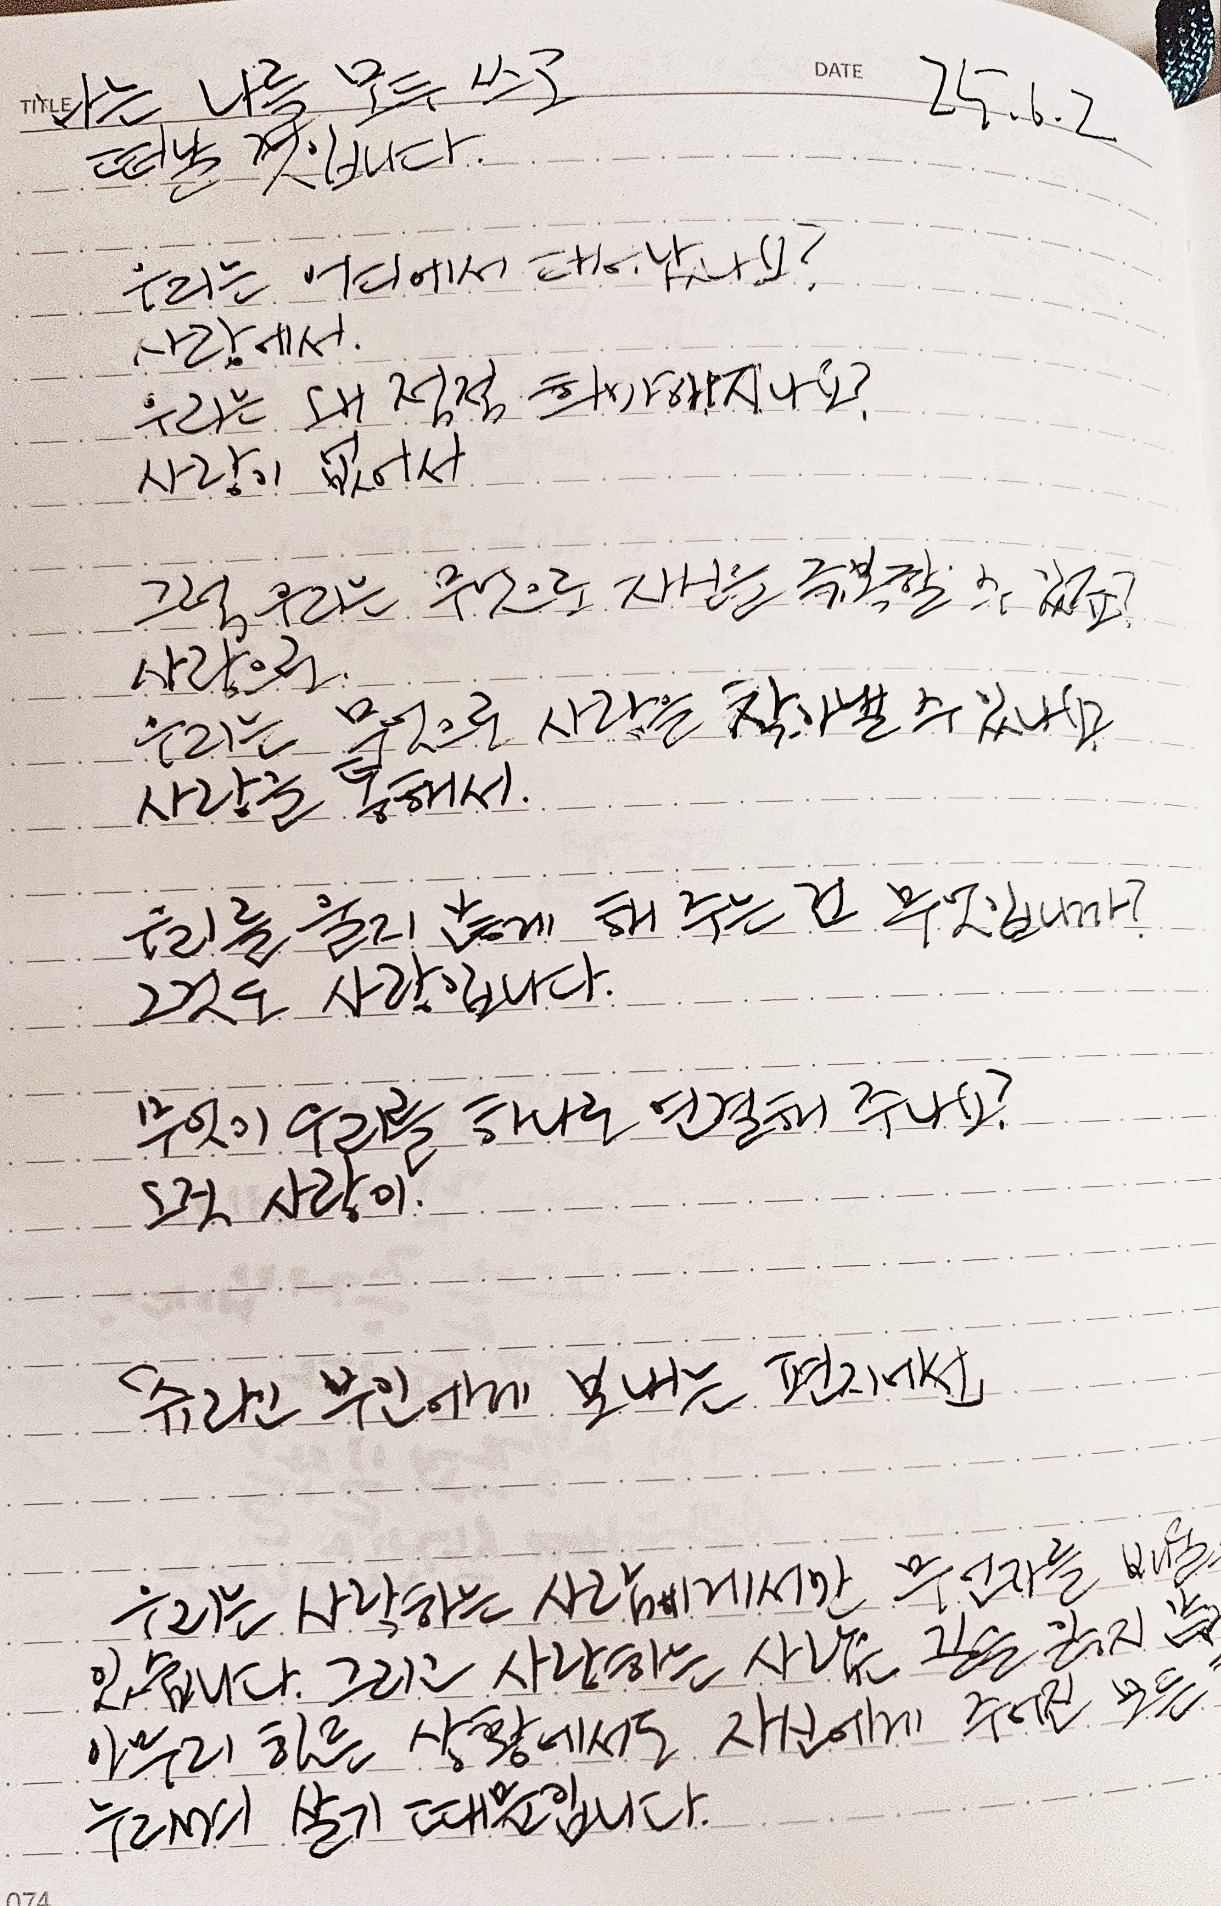 TITLE 나는 나를 모두 쓰고
DATE 25.6.2
떠날 것입니다.
우리는 어디에서 태어났나요?
사랑에서.
우리는 왜 점점 희미해지나요?
사랑이 없어서
그럼, 우리는 무엇으로 자신을 극복할 수 있죠?
사랑으로.
우리는 무엇으로 사랑을 찾아낼 수 있나요
사랑을 통해서.
우리를 울지 않게 해 주는 건 무엇입니까?
그것도 사랑입니다.
무엇이 우리를 하나로 연결해 주나요?
오직 사랑이.
「슈타인 부인에게 보내는 편지에서」
우리는 사랑하는 사람에게서만 무언가를 배울
있습니다. 그리고 사랑하는 사람은 길을 잃지 않
아무리 힘든 상황에서도 자신에게 주어진 모든
누리며 살기 때문입니다.
074